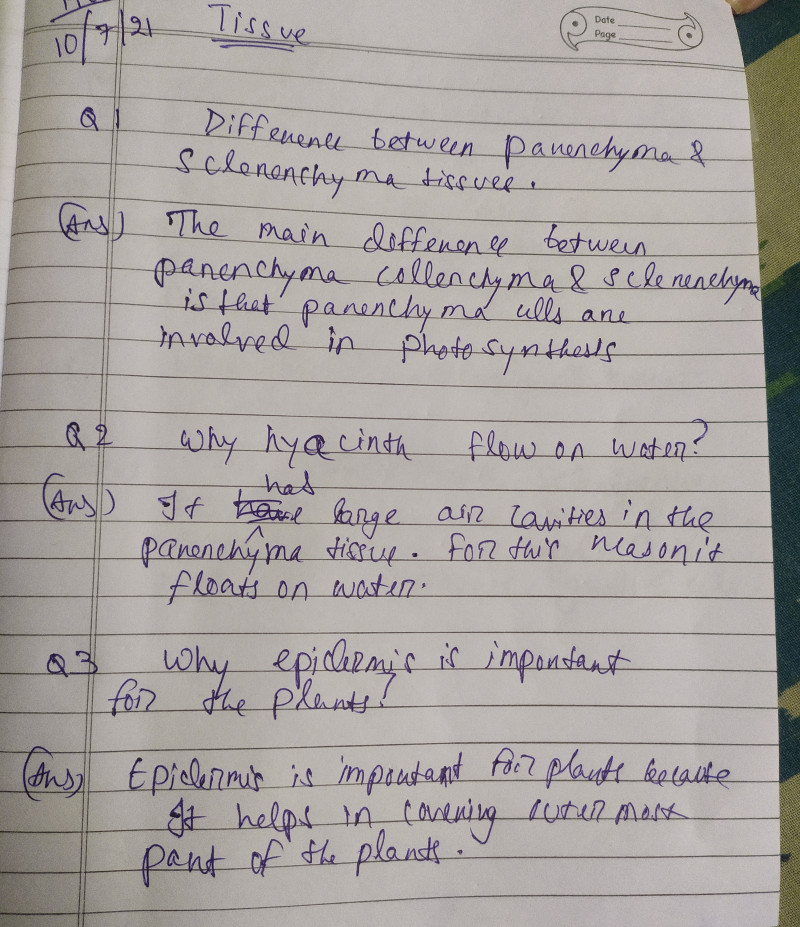 10/7/21
Tissue
Date
Page
Q 1 Difference between parenchyma &
Sclerenchyma tissues.
(Ans) The main difference between
parenchyma collenchyma & sclerenchyma
is that parenchyma cells are
involved in photosynthesis
Q 2 Why hyacinth flow on water?
has
(Ans) It have large air cavities in the
parenchyma tissue. For this reason it
floats on water.
Q 3 Why epidermis is important
for the plants?
(Ans) Epidermis is important for plants because
It helps in covering outer most
part of the plants.